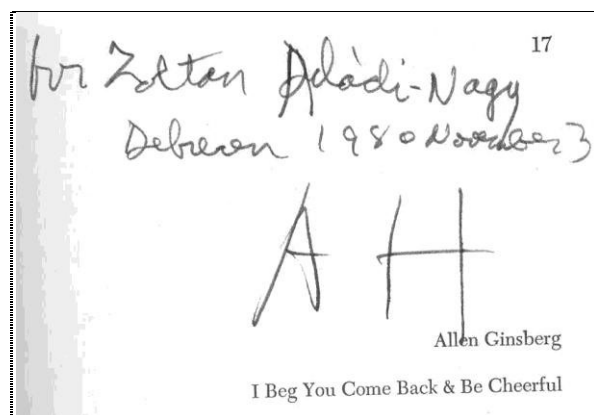 17
for Zoltan Abàdi-Nagy
Debrecen 1980 November 3
A H
Allen Ginsberg
I Beg You Come Back & Be Cheerful